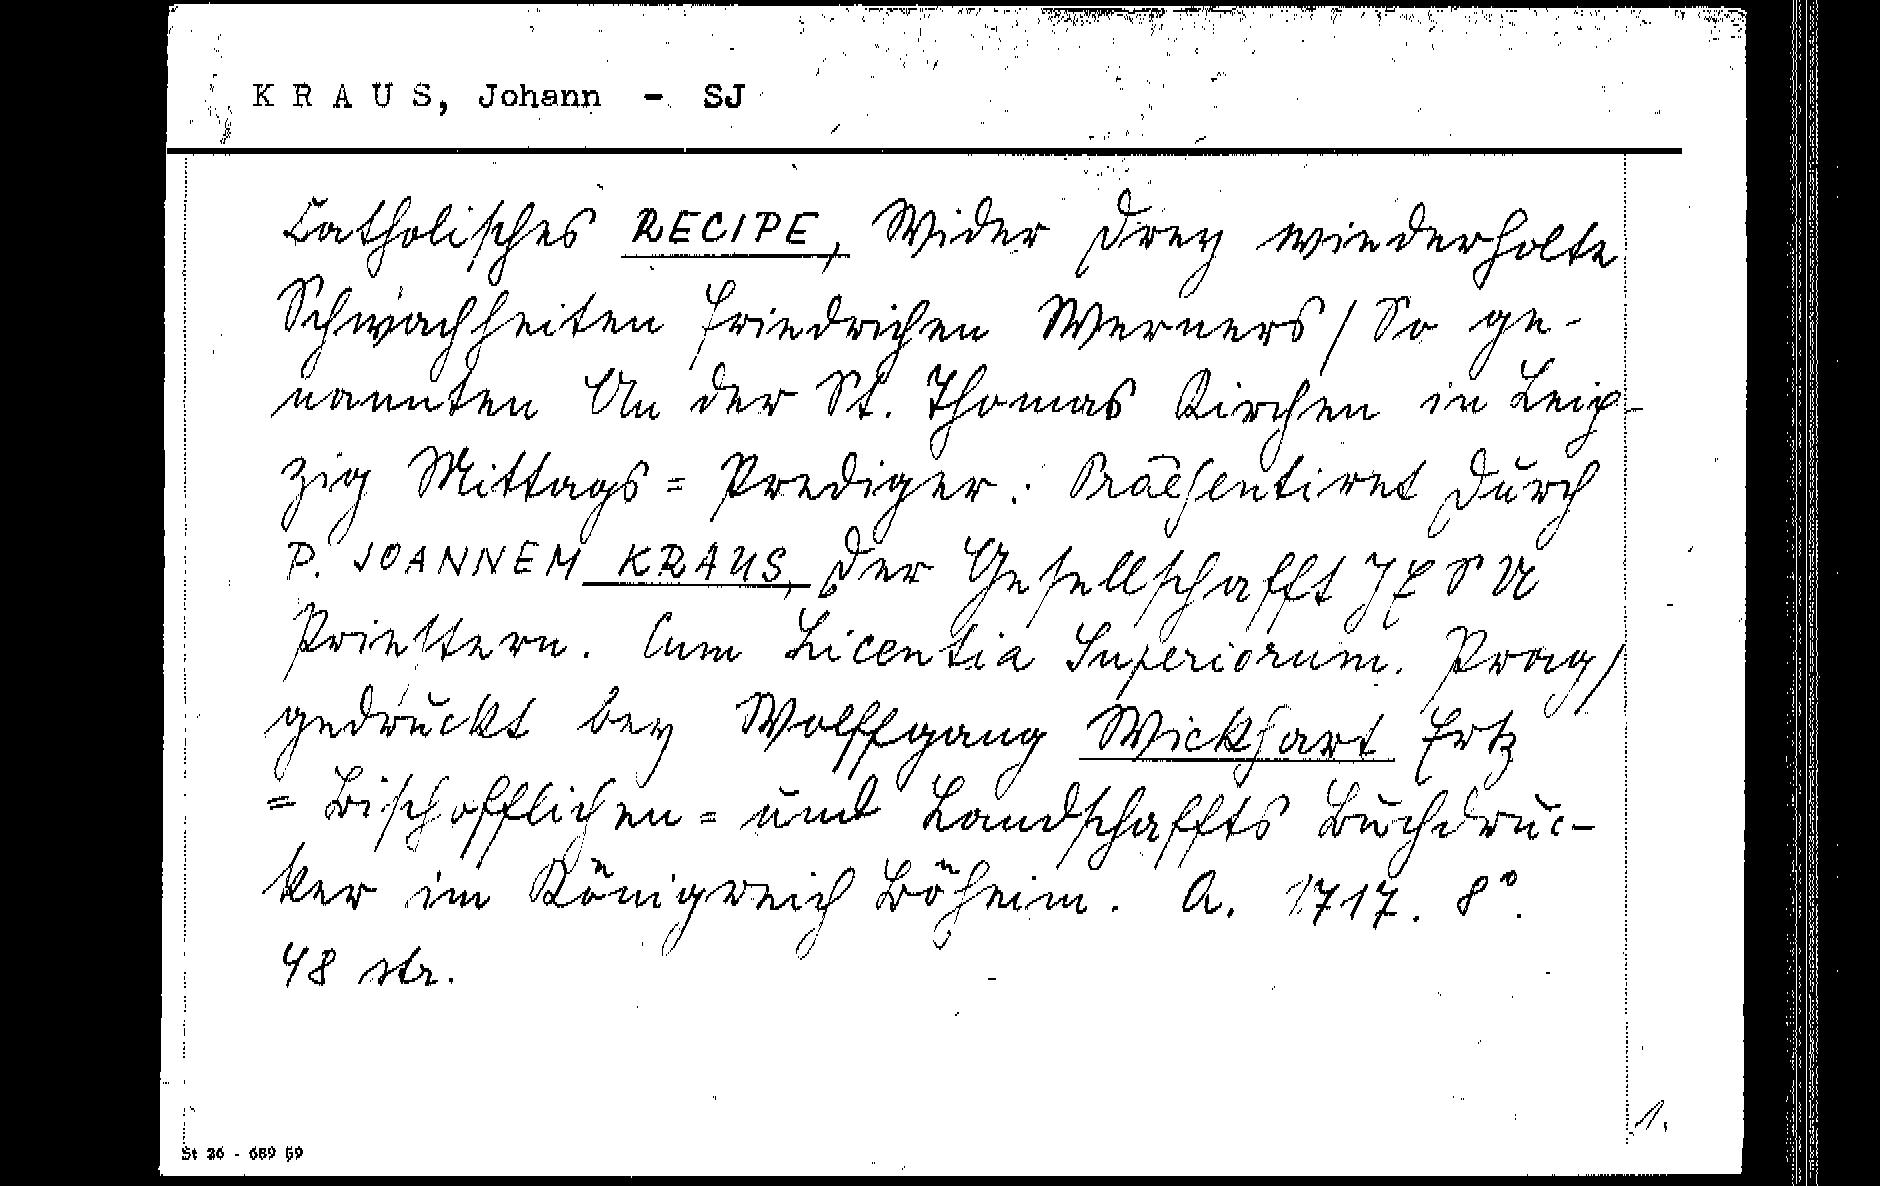 KRAUS, Johann - SJ
Catholisches RECIPE, Wider Drey wiederholte
Schwachheiten Friedrichen Werners / So ge-
nannten An der St. Thomas Kirchen in Leip-
zig Mittags = Prediger: Praesentiret Durch
P. JOANNEM KRAUS, Der Gesellschafft JESU
Priestern. Cum Licentia Superiorum. Prag /
gedruckt bey Wolffgang Wickhart Ertz
= Bischofflichen = und Landschaffts Buchdruc-
ker im Königreich Böheim. A. 1717. 8°.
48 str.
1.
St 36 - 689 59